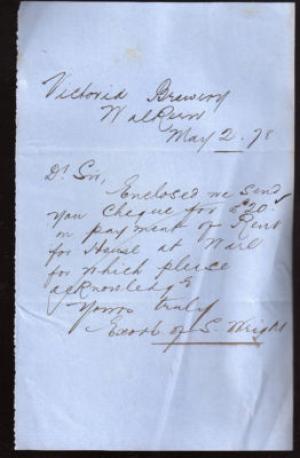 Victoria Brewery
Walkern
May 2. 78
Dr Sir,
Enclosed we send
you cheque for £20.
in payment of Rent
for House at Ware
for which please
acknowledge
Yours truly
Exors of S. Wright